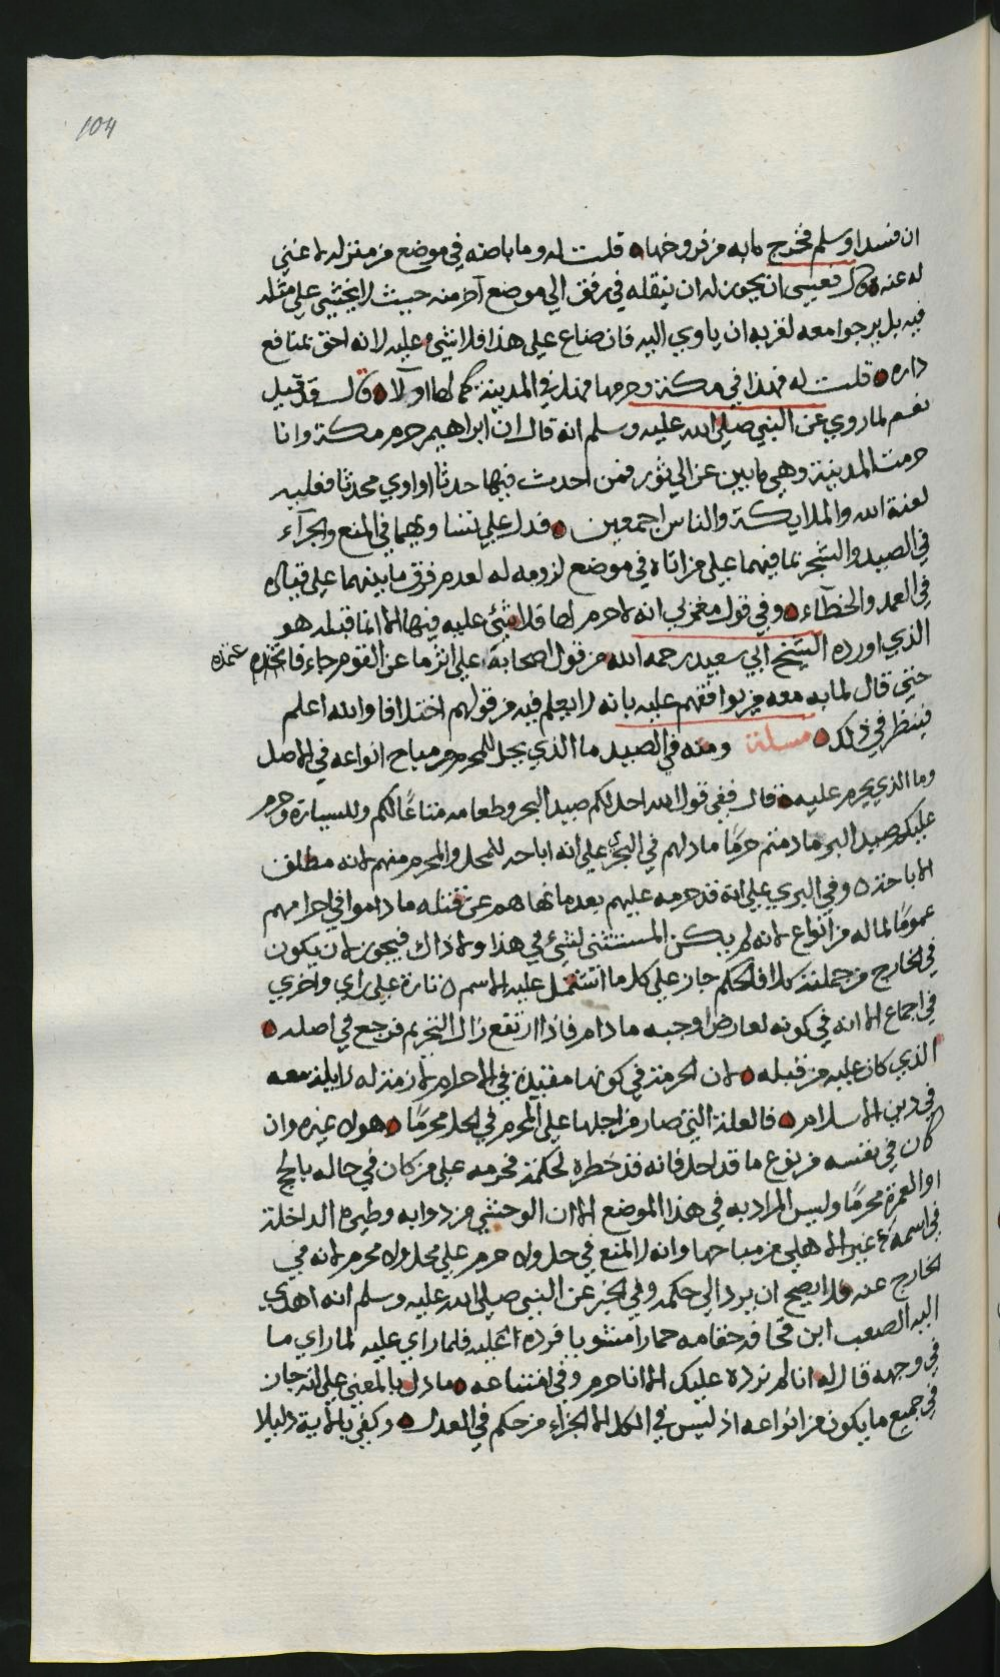 104
ان فسدا وسلم فخرج مابه من فروخها قلت له وما باضته في موضع من منزله لا غنى
له عنه قال فعسى ان يجوز له ان ينقله في رفق الي موضع آخر منه حيث لا يخشى على مثله
فيه بل يرجوا معه لقربه ان ياوي اليه فان ضاع على هذا فلا شيء عليه لانه احق بمنافع
داره قلت له فهذا في مكة وحرمها فهل في المدينة كما لها او لا قال قد قيل
نعم لما روي عن النبي صلى الله عليه وسلم انه قال ان ابراهيم حرم مكة وانا
حرمت المدينة وهي ما بين عير الي ثور فمن احدث فيها حدثا او اوي محدثا فعليه
لعنة الله والملايكة والناس اجمعين فدل على تساويهما في المنع والجزآء
في الصيد والشجر بما فيهما على من اتاه في موضع لزومه له لعدم فرق ما بينهما على قياده
في العمد والخطآء وفي قول مغربي انه لا حرم لها فلا شيء عليه فيها الا انما قبله هو
الذي اورده الشيخ ابي سعيد رحمه الله من قول اصحابه على اثر ما عن القوم جاء فاتخذه عمدة
حتى قال لما به معه من يوافقهم عليه بانه لا يعلم فيه من قولهم اختلافا والله اعلم
فينظر في ذلك مسلة ومنه في الصيد ما الذي يحل للمحرم من مباح انواعه في الاصل
وما الذي يحرم عليه قال ففي قول الله احل لكم صيد البحر وطعامه متاعا لكم وللسيارة وحرم
عليكم صيد البر ما دمتم حرمًا ما دلهم في البحرى على انه اباحه للمحل والمحرم منهم لانه مطلق
الاباحة وفي البري على انه قد حرمه عليهم بعد ما نهاهم عن قتله ما داموا في احرامهم
عمومًا لما له من انواع لانه لم يكن المستثنى لشيء في هذا ولا ذاك فيجوز لان يكون
في الخارج من جملته كلا فالحكم جاز على كل ما اشتمل عليه الاسم تارة على راي واخري
في اجماع الا انه في كونه لعارض اوجبه ما دام فاذا ارتفع زال التحريم فرجع في اصله
الذي كان عليه من قبله لان الحرمة في كونها مقيدة في الاحرام لا زمنزله زايلة معه
في دين الاسلام فالعلة التي صار من اجلها على المحرم في الحل محرمًا هو لا غيره وان
كان في نفسه من نوع ما قد احل فانه قد حظره لحكمة فحرمه على من كان في حاله بالحج
او العمرة محرمًا وليس المراد به في هذا الموضع الا ان الوحشي من دوابه وطيره الداخلة
في اسمه غير الاهلي من مباحها وانه لا المنع في حل ولا حرم على محل ولا محرم لانه في
الخارج عنه فلا يصح ان يرد الي حكمه وفي الخبر عن النبي صلى الله عليه وسلم انه اهدي
اليه الصعب ابن قحافد حقامه حمارا مشويا فرده عليه فلما راي عليه لما راي ما
في وجهه قال له انا لم نرده عليك الا انا حرم وفي امتناعه ما دل بالمعنى على انه جاز
في جميع ما يكون من انواعه اذ ليس في الكل الا الجزاء من حكم في العدل وكفى بالاية دليلا